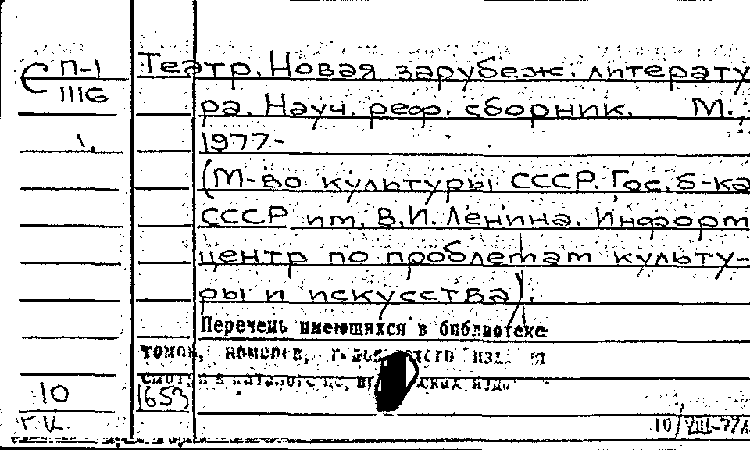 С П-1
111б
Театр. Новая зарубеж. литерату
ра. Науч. реф. сборник. М.,
1.
1977-
(М-во культуры СССР. Гос. б-ка
СССР им. В.И. Ленина. Информ
центр по проблемам культу-
ры и искусства).
Перечень имеющихся в библиотеке
томов, номеров,
10
1653
г.к.
10/VIII-77